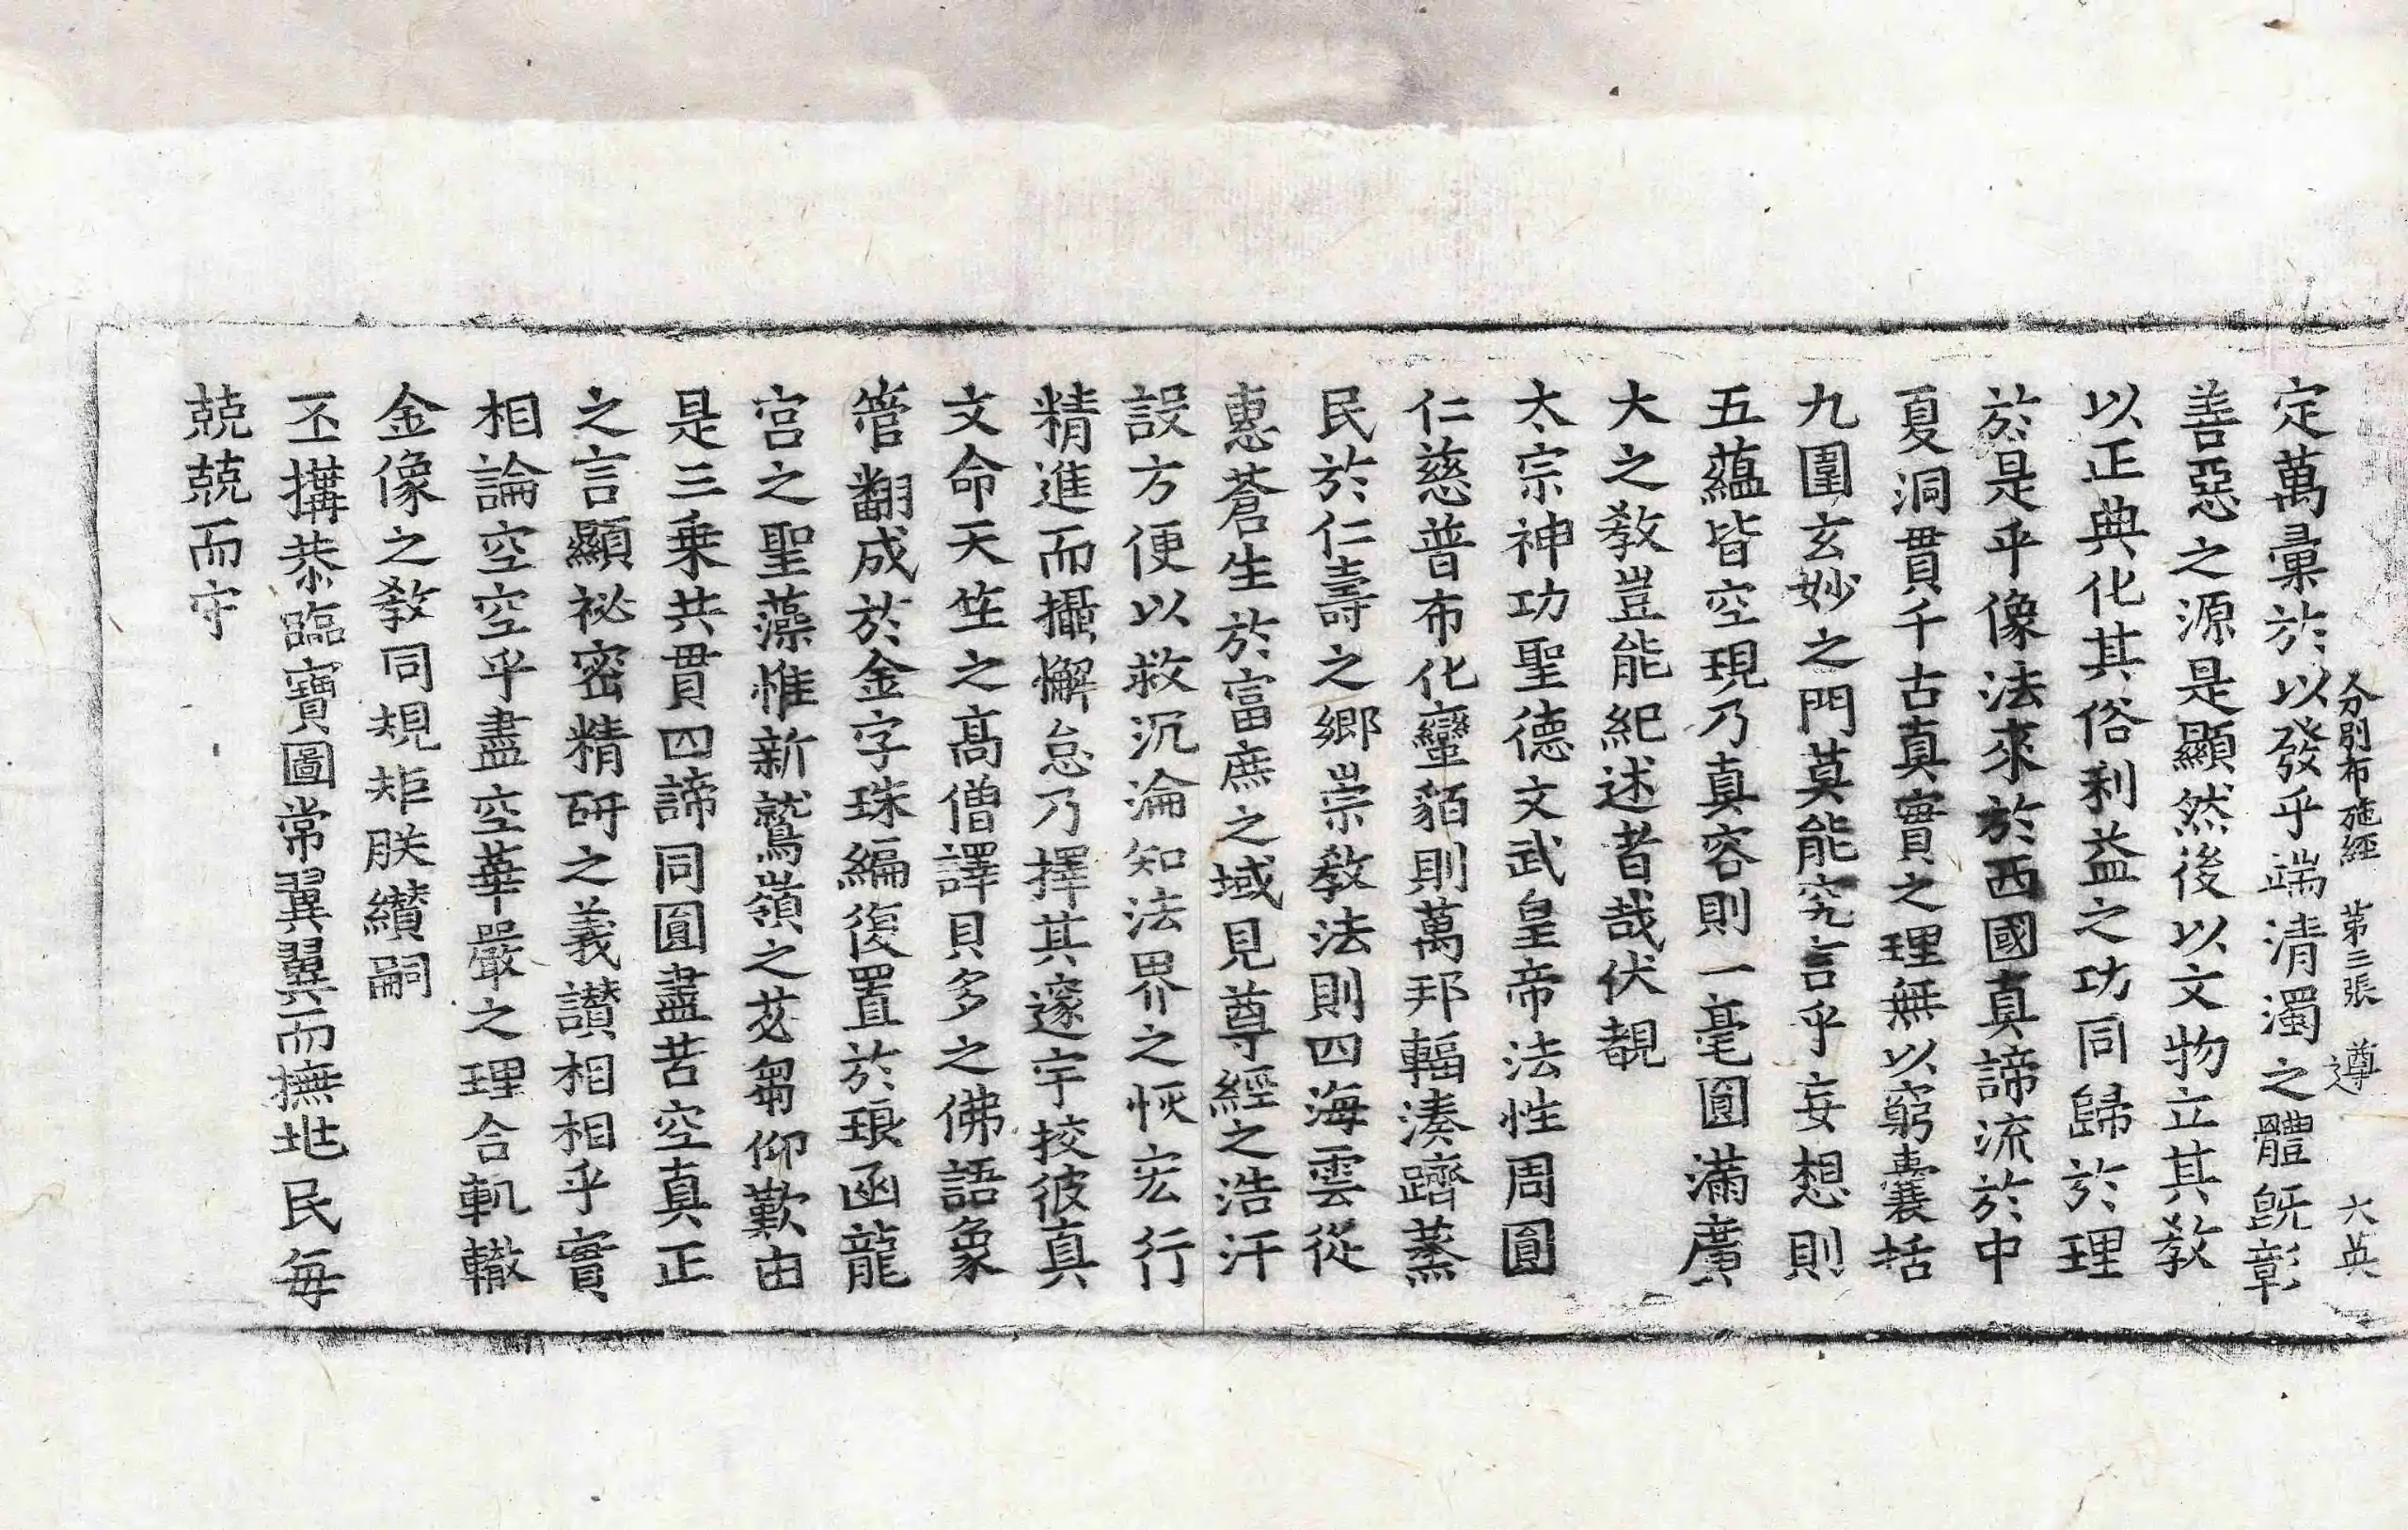 分別布施經　第三張　遵　六英
定萬彙於以發乎端清濁之體旣彰
善惡之源是顯然後以文物立其教
以正典化其俗利益之功同歸於理
於是乎像法來於西國真諦流於中
夏洞貫千古真實之理無以窮囊括
九圍玄妙之門莫能究言乎妄想則
五蘊皆空現乃真容則一毫圓滿廣
大之教豈能紀述者哉伏覩
太宗神功聖德文武皇帝法性周圓
仁慈普布化蠻貊則萬邦輻湊躋蒸
民於仁壽之鄉崇教法則四海雲從
惠蒼生於富庶之域見尊經之浩汗
設方便以救沉淪知法界之恢宏行
精進而攝懈怠乃擇其邃宇挍彼真
文命天竺之高僧譯貝多之佛語象
管翻成於金字珠編復置於琅函龍
宮之聖藻惟新鷲嶺之苾蒭仰歎由
是三乗共貫四諦同圓盡苦空真正
之言顯祕密精研之義讃相相乎實
相論空空乎盡空華嚴之理合軌轍
金像之教同規矩朕纘嗣
丕搆恭臨寶圖常翼翼而撫兆民每
兢兢而守